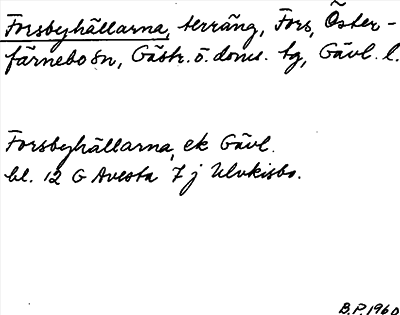 Forsbyhällarna, terräng, Fors, Öster-
färnebo sn, Gästr. ö. doms. tg, Gävl. l.
Forsbyhällarna, ek Gävl.
bl. 12 G Avesta 7 j Ulvkisbo.
B.P. 1960